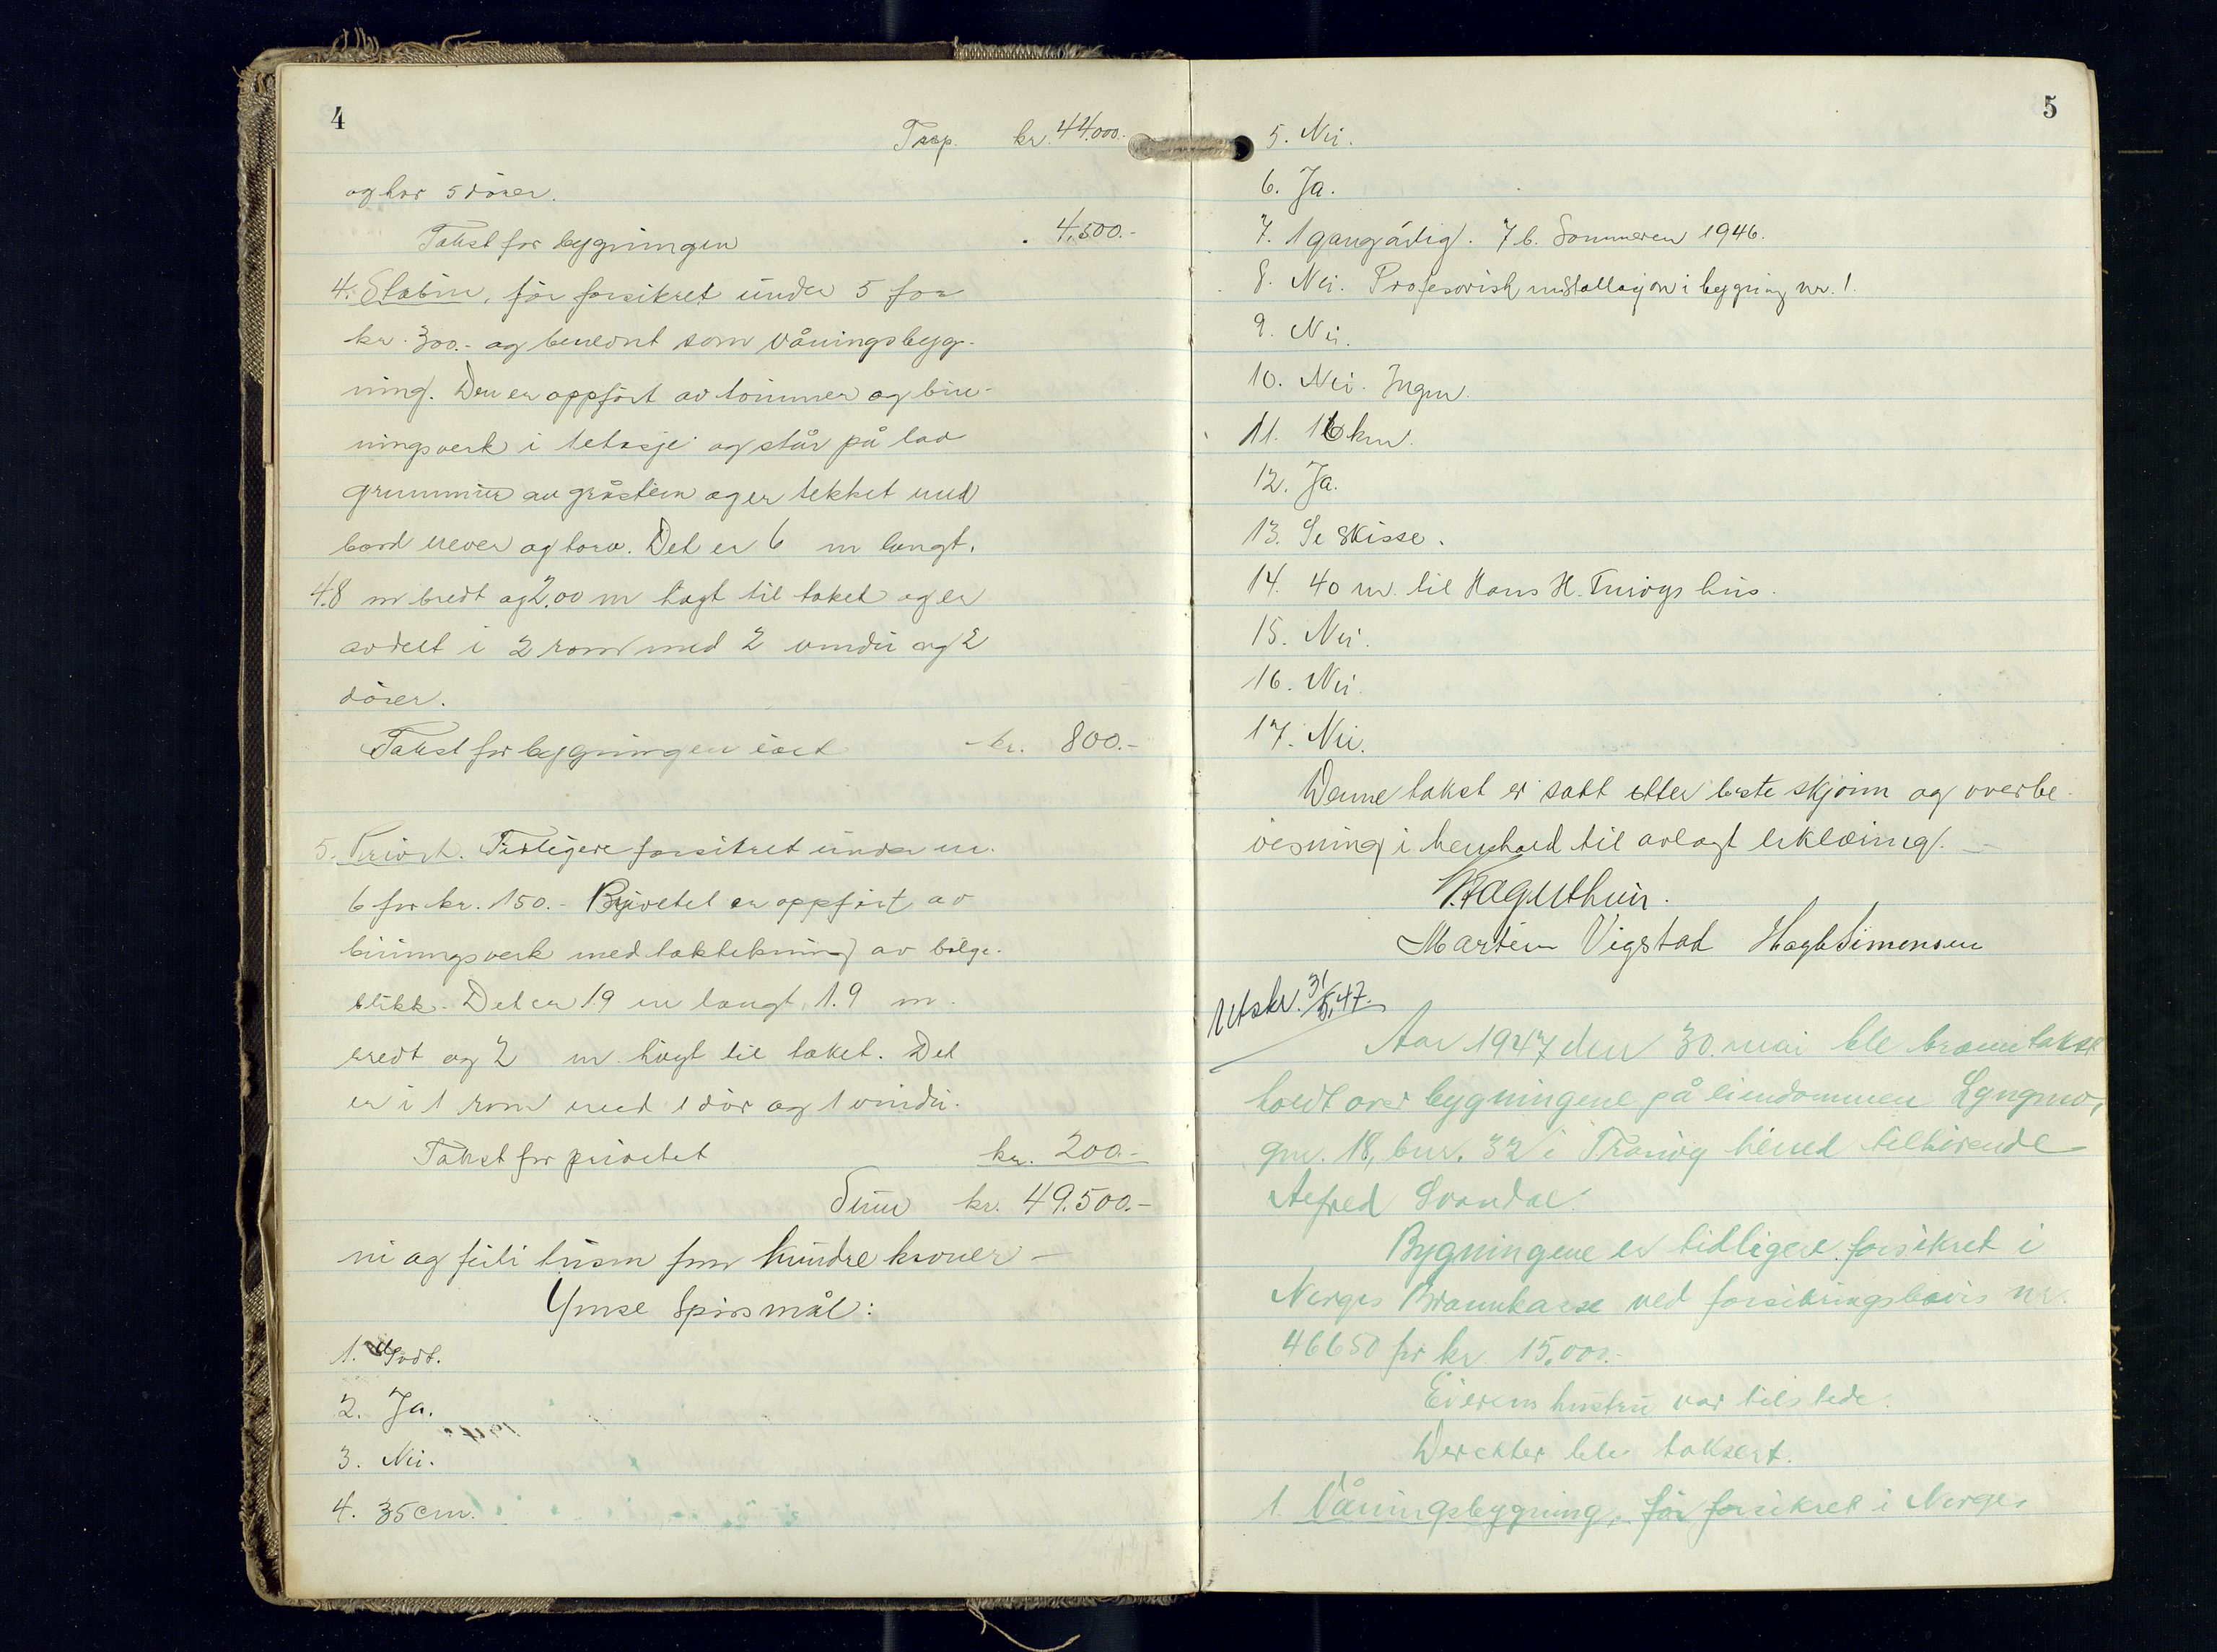 4
Trsp. kr. 44.000.-
og har 5 dörer.
Takst for bygningen . 4.500.-
4. Stabur, för forsikret under 5 for
kr. 300.- og benevnt som våningsbyg-
ning. Den er oppfört av tömmer og bin-
ningsverk i 1 etasje og står på lav
grunnmur av gråstein og er tekket med
bord never og torv. Det er 6 m langt.
4.8 m bredt og 2.00 m högt til taket og er
avdelt i 2 rom med 2 vindu og 2
dörer.
Takst for bygningen i alt kr. 800.-
5. Privet. Tidligere forsikret under nr.
6 for kr. 150.- Privetet er oppfört av
binningsverk med taktekning av bölge-
blikk. Det er 1.9 m langt, 1.9 m
bredt og 2 m högt til taket. Det
er i 1 rom med 1 dör og 1 vindu.
Takst for privetet kr. 200.-
Sum kr. 49.500.-
ni og förti tusen fem hundre kroner -
Ymse spörsmål:
1. Godt.
2. Ja.
3. Nei.
4. 35 cm.
5
5. Nei.
6. Ja.
7. 1 gang årlig. 7 b. Sommeren 1946.
8. Nei. Profesorisk installasjon i bygning nr. 1.
9. Nei.
10. Nei. Ingen.
11. 16 km.
12. Ja.
13. Se skisse.
14. 40 m. til Hans H. hus.
15. Nei.
16. Nei.
17. Nei.
Denne takst er satt etter beste skjönn og overbe-
visning i henhold til avlagt erklæring. -
Martin Vigstad Hagb Simonsen
Utskr. 31/5.47.
Aar 1947 den 30. mai ble branntakst
holdt over bygningene på eiendommen Lyngmo,
gnr. 18, bnr. 32 i Tranöy herred tilhörende
Alfred Svandal.
Bygningene er tidligere forsikret i
Norges Brannkasse ved forsikringsbevis nr.
46650 for kr. 15.000.-
Eierens hustru var tilstede.
Derefter ble taksert.
1. Våningsbygning, för forsikret i Norges